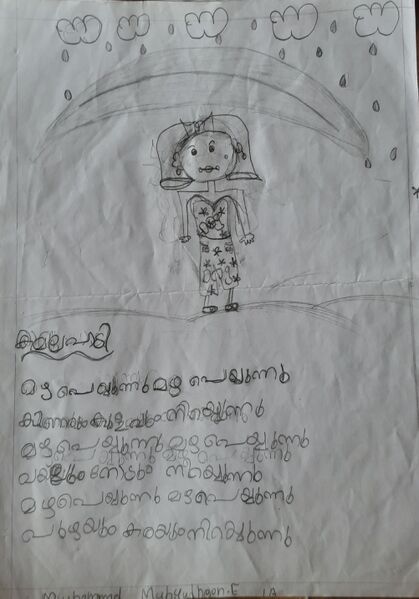 മഴ പെയ്യുന്നു മഴ പെയ്യുന്നു
കിണറും കുളവും നിറയുന്നു
മഴപെയ്യുന്നു മഴ പെയ്യുന്നു
വയലും തോടും നിറയുന്നു
മഴപെയ്യുന്നു മഴപെയ്യുന്നു
പുഴയും കരയും നിറയുന്നു
Muhammed E 1A